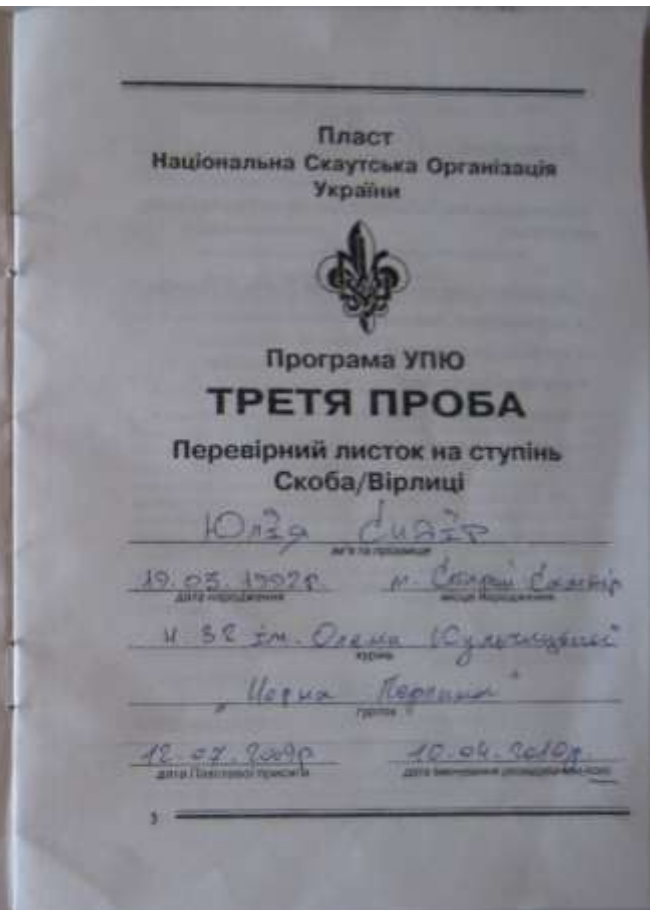 Пласт
Національна Скаутська Організація
України
Програма УПЮ
ТРЕТЯ ПРОБА
Перевірний листок на ступінь
Скоба/Вірлиці
Юлія
ім'я та прізвище
19.03.1992р. м. Старий Самбір
дата народження місце народження
ч 32 ім. Олени Кульчицької"
курінь
„Чорна Перлина"
гурток
12.07.2009р 10.04.2010р.
дата Пластової присяги дата іменування
3